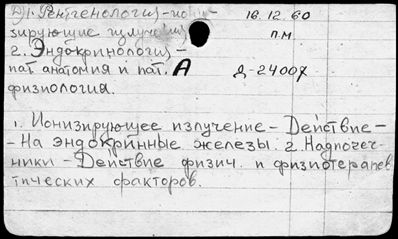 1. Рентгенология-иони- 16.12.60
зирующие излучения п.м
2. Эндокринология -
пат. анатомия и пат. А Д-24007
физиология.
1. Ионизирующее излучение - Действие -
- На эндокринные железы. 2. Надпочеч-
ники - Действие физич. и физиотерапев
тических факторов.